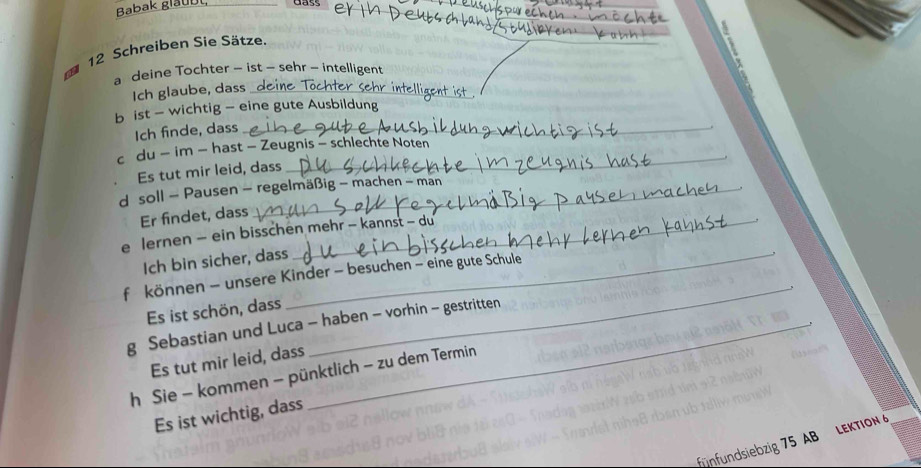 Babak glaubt, dass er in Deutschland studieren möchte
12 Schreiben Sie Sätze.
a deine Tochter – ist – sehr – intelligent
Ich glaube, dass deine Tochter sehr intelligent ist.
b ist – wichtig – eine gute Ausbildung
Ich finde, dass eine gute Ausbildung wichtig ist.
c du – im – hast – Zeugnis – schlechte Noten
Es tut mir leid, dass Du schlechte im zeugnis hast.
d soll – Pausen – regelmäßig – machen – man
Er findet, dass man soll regelmäßig pausen machen.
e lernen – ein bisschen mehr – kannst – du
Ich bin sicher, dass du ein bisschen mehr lernen kannst.
f können – unsere Kinder – besuchen – eine gute Schule
Es ist schön, dass
g Sebastian und Luca – haben – vorhin – gestritten
Es tut mir leid, dass
h Sie – kommen – pünktlich – zu dem Termin
Es ist wichtig, dass
fünfundsiebzig 75 AB LEKTION 6